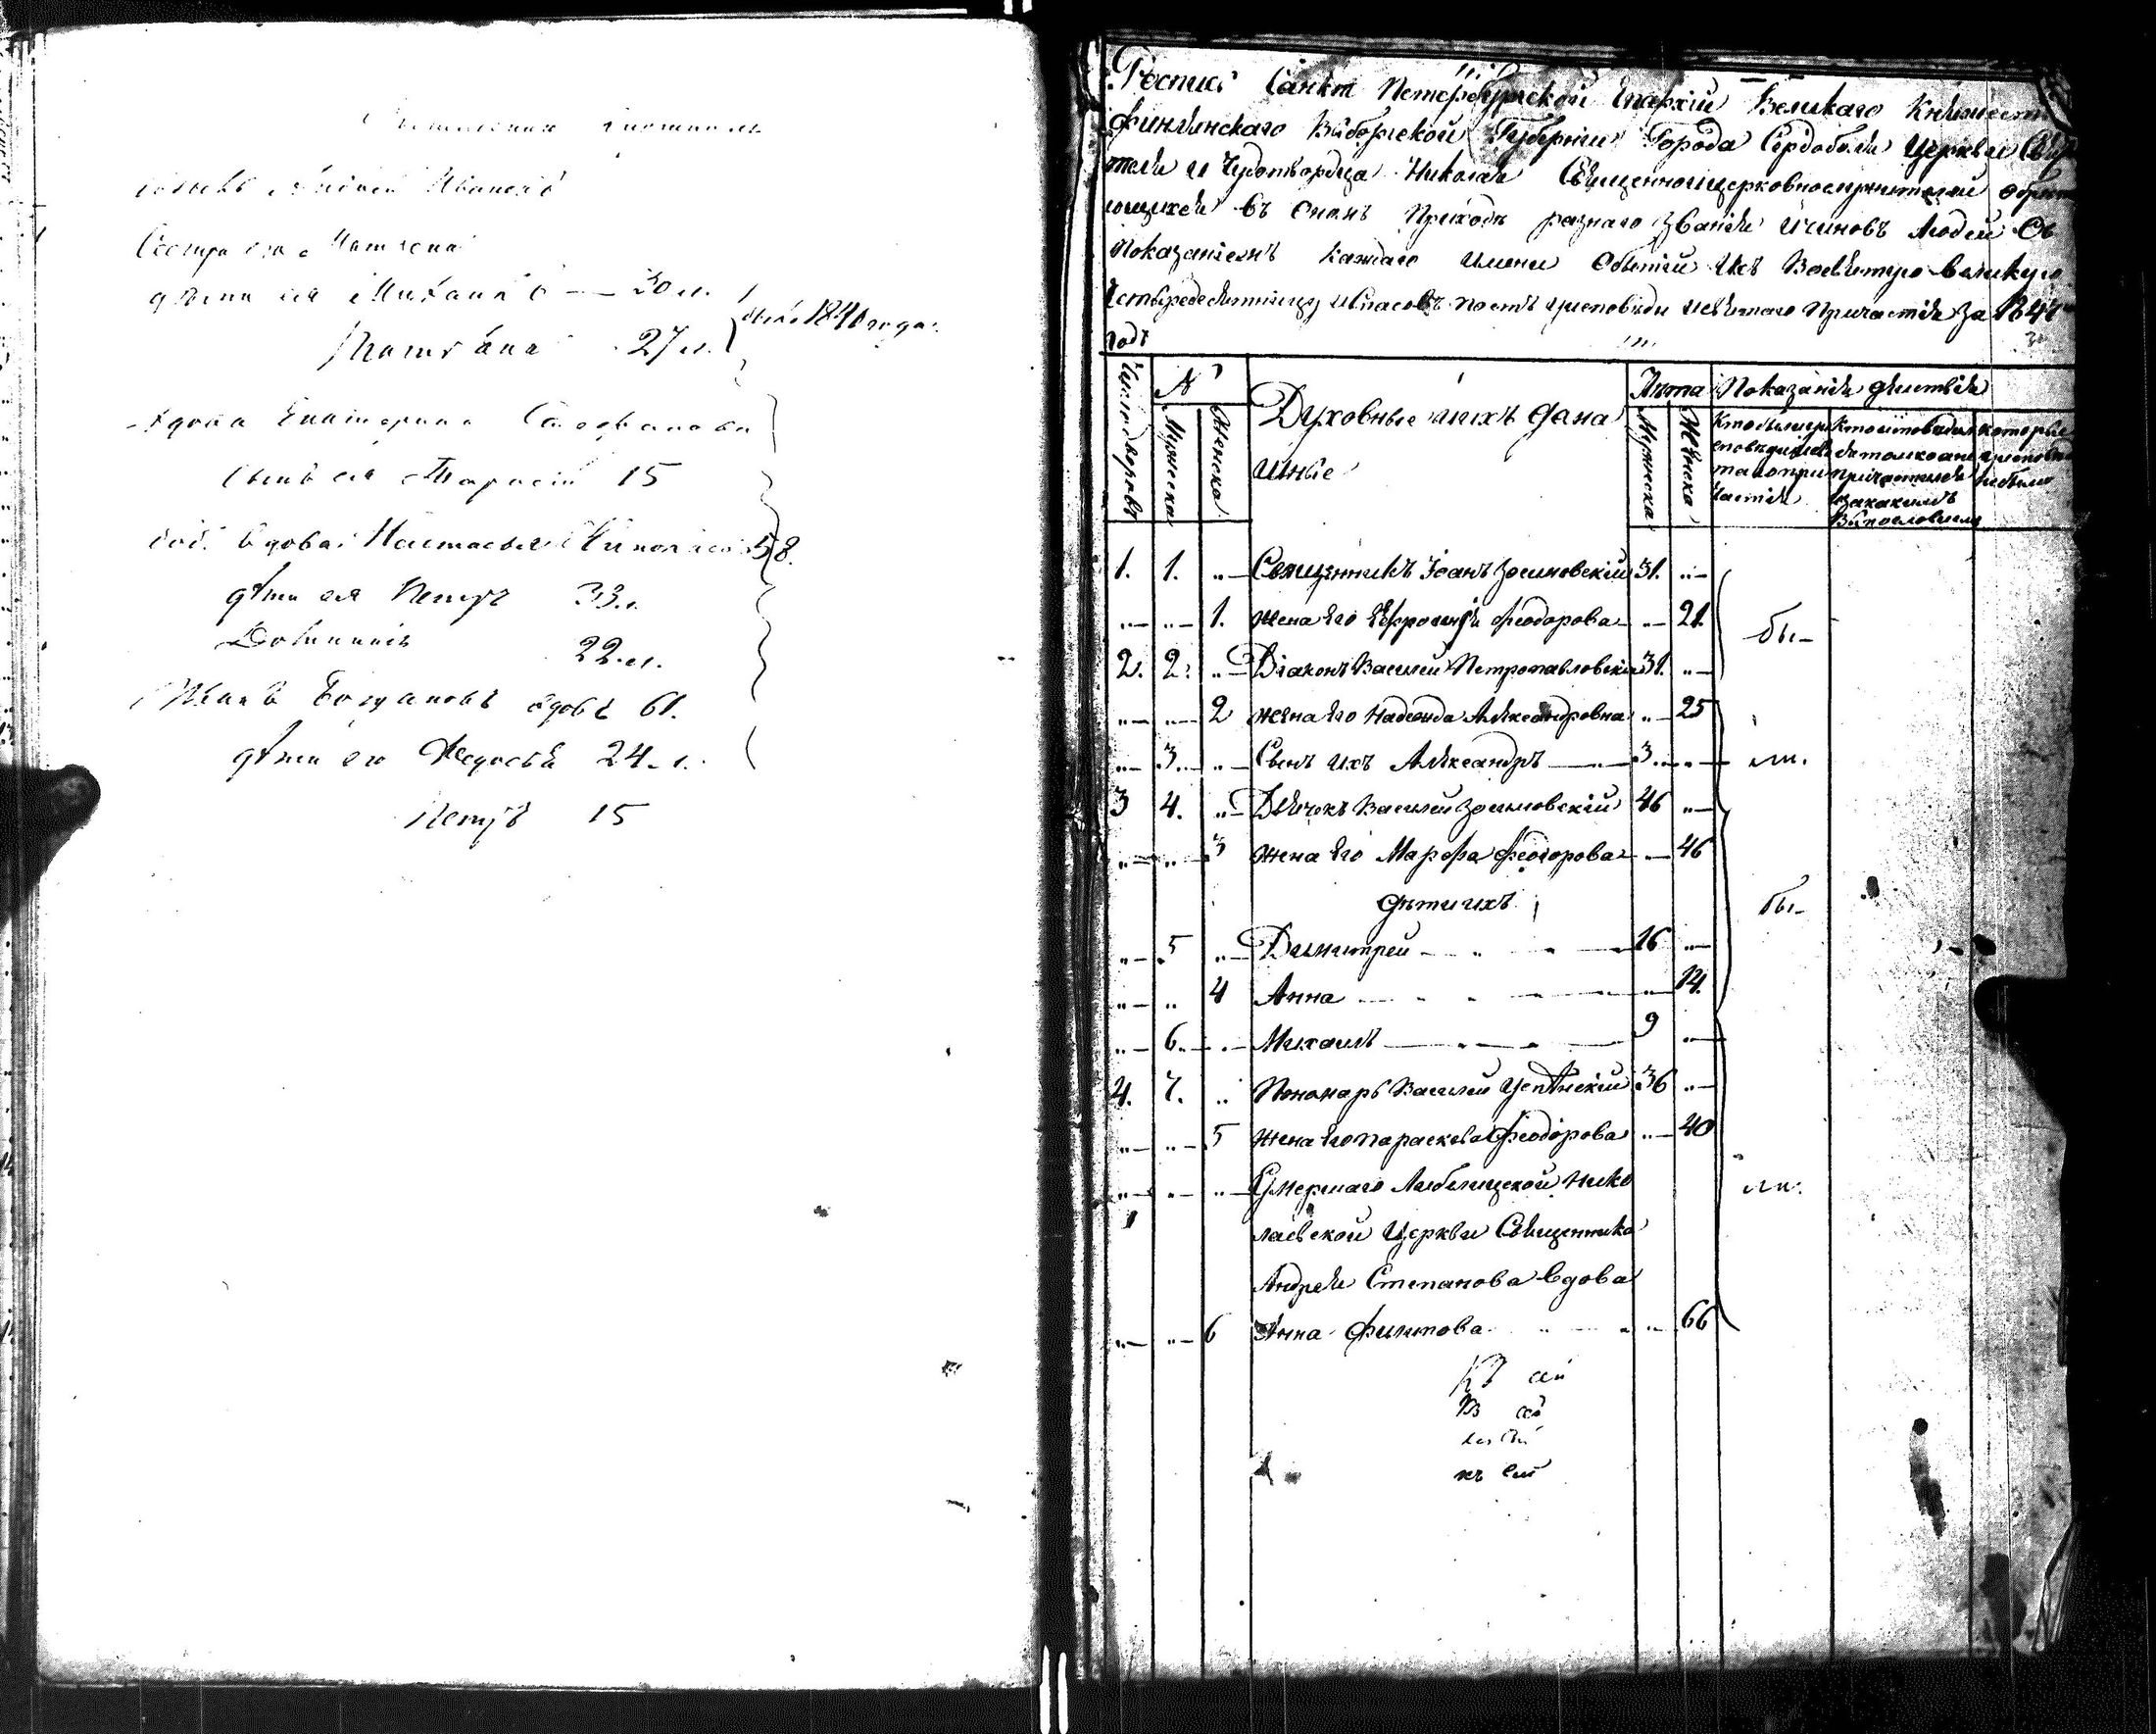 Сестра его Матрена
дѣти ея Михаилъ — 30 л.
Татіана 27 л.
1840 года
вдова Екатерина
сынъ ея Тарасій 15
вдова Настасья 58.
дѣти ея Петръ 33.
22. л.
вдовъ 61.
дѣти его Федосья 24. л.
Петръ 15
Роспись Санктъ Петербургской Епархіи Великаго Княжест
Финлянскаго Выборгской Губерніи Города Сердоболя Церкви Свя
теля и Чудотворца Николая Священноицерковнослужителей обрета
ющихся въ ономъ Приходѣ разнаго Званія ичиновъ Людей Съ
Показаніемъ каждаго имени Обытіи Ихъ Восвятую великую
Четыредесятницу иСпасовъ постъ уисповѣди исвятаго Причастія за 184
годъ
Число дворовъ
№
Мужеска
Женска
Духовные иихъ дама
шные
Лѣта
Мужеска
Женска
Показаніе действія
Ктобылиуи споведиисвя таго при частія
Ктоисповедался атолкоане причастился изакакимъ Винословіемъ
которые уисповеди небыли
1. 1. Священникъ Іоанъ Зосимовскій 31.
1. жена Его Ефросинія Феодорова 21.
бы-
2. 2. Діаконъ Василей Петропавловскій 31.
2 жена Его Надежда Александровна 25
3. Сынъ ихъ Александръ 3.
ли.
3 4. Дьячекъ Василей Зосимовскій 46
3 жена Его Марфа Феодорова 46
дѣти ихъ
бы-
5 Димитрей 16
4 Анна 14.
6. Михаилъ 9
4. 7. Пономарь Василей Успѣнскій 36
5 жена Его параскева Феодорова 40
Умершаго Нико
ли.
лаевской Церкви Священника
Андрея Степанова вдова
6 Анна Филипова 66